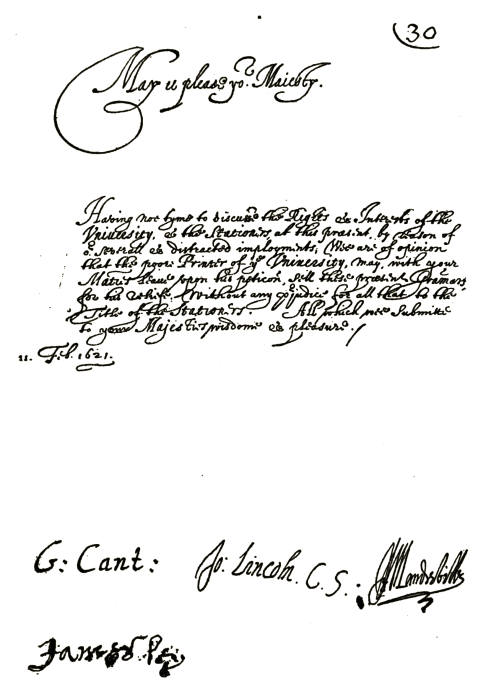 30
May it please yor. Maiesty.
Having not tyme to discusse the Rights & Interests of the
Vniuersity, & the Stationers at this present, by reason of
or. seuerall & distracted imployments, Wee are of opinion
that the poore Printer of ye Vniuersity, may, with your
Maties leaue vpon his peticon, sell these present Gramars
for his reliefe, Without any preiudice for all that to the
Title of the Stationers. All which wee submitte
to your Majesties wisdome & pleasure. /
11. Feb. 1621.
G: Cant: Jo: Lincoln. C. S.: Mandeville
James Ley